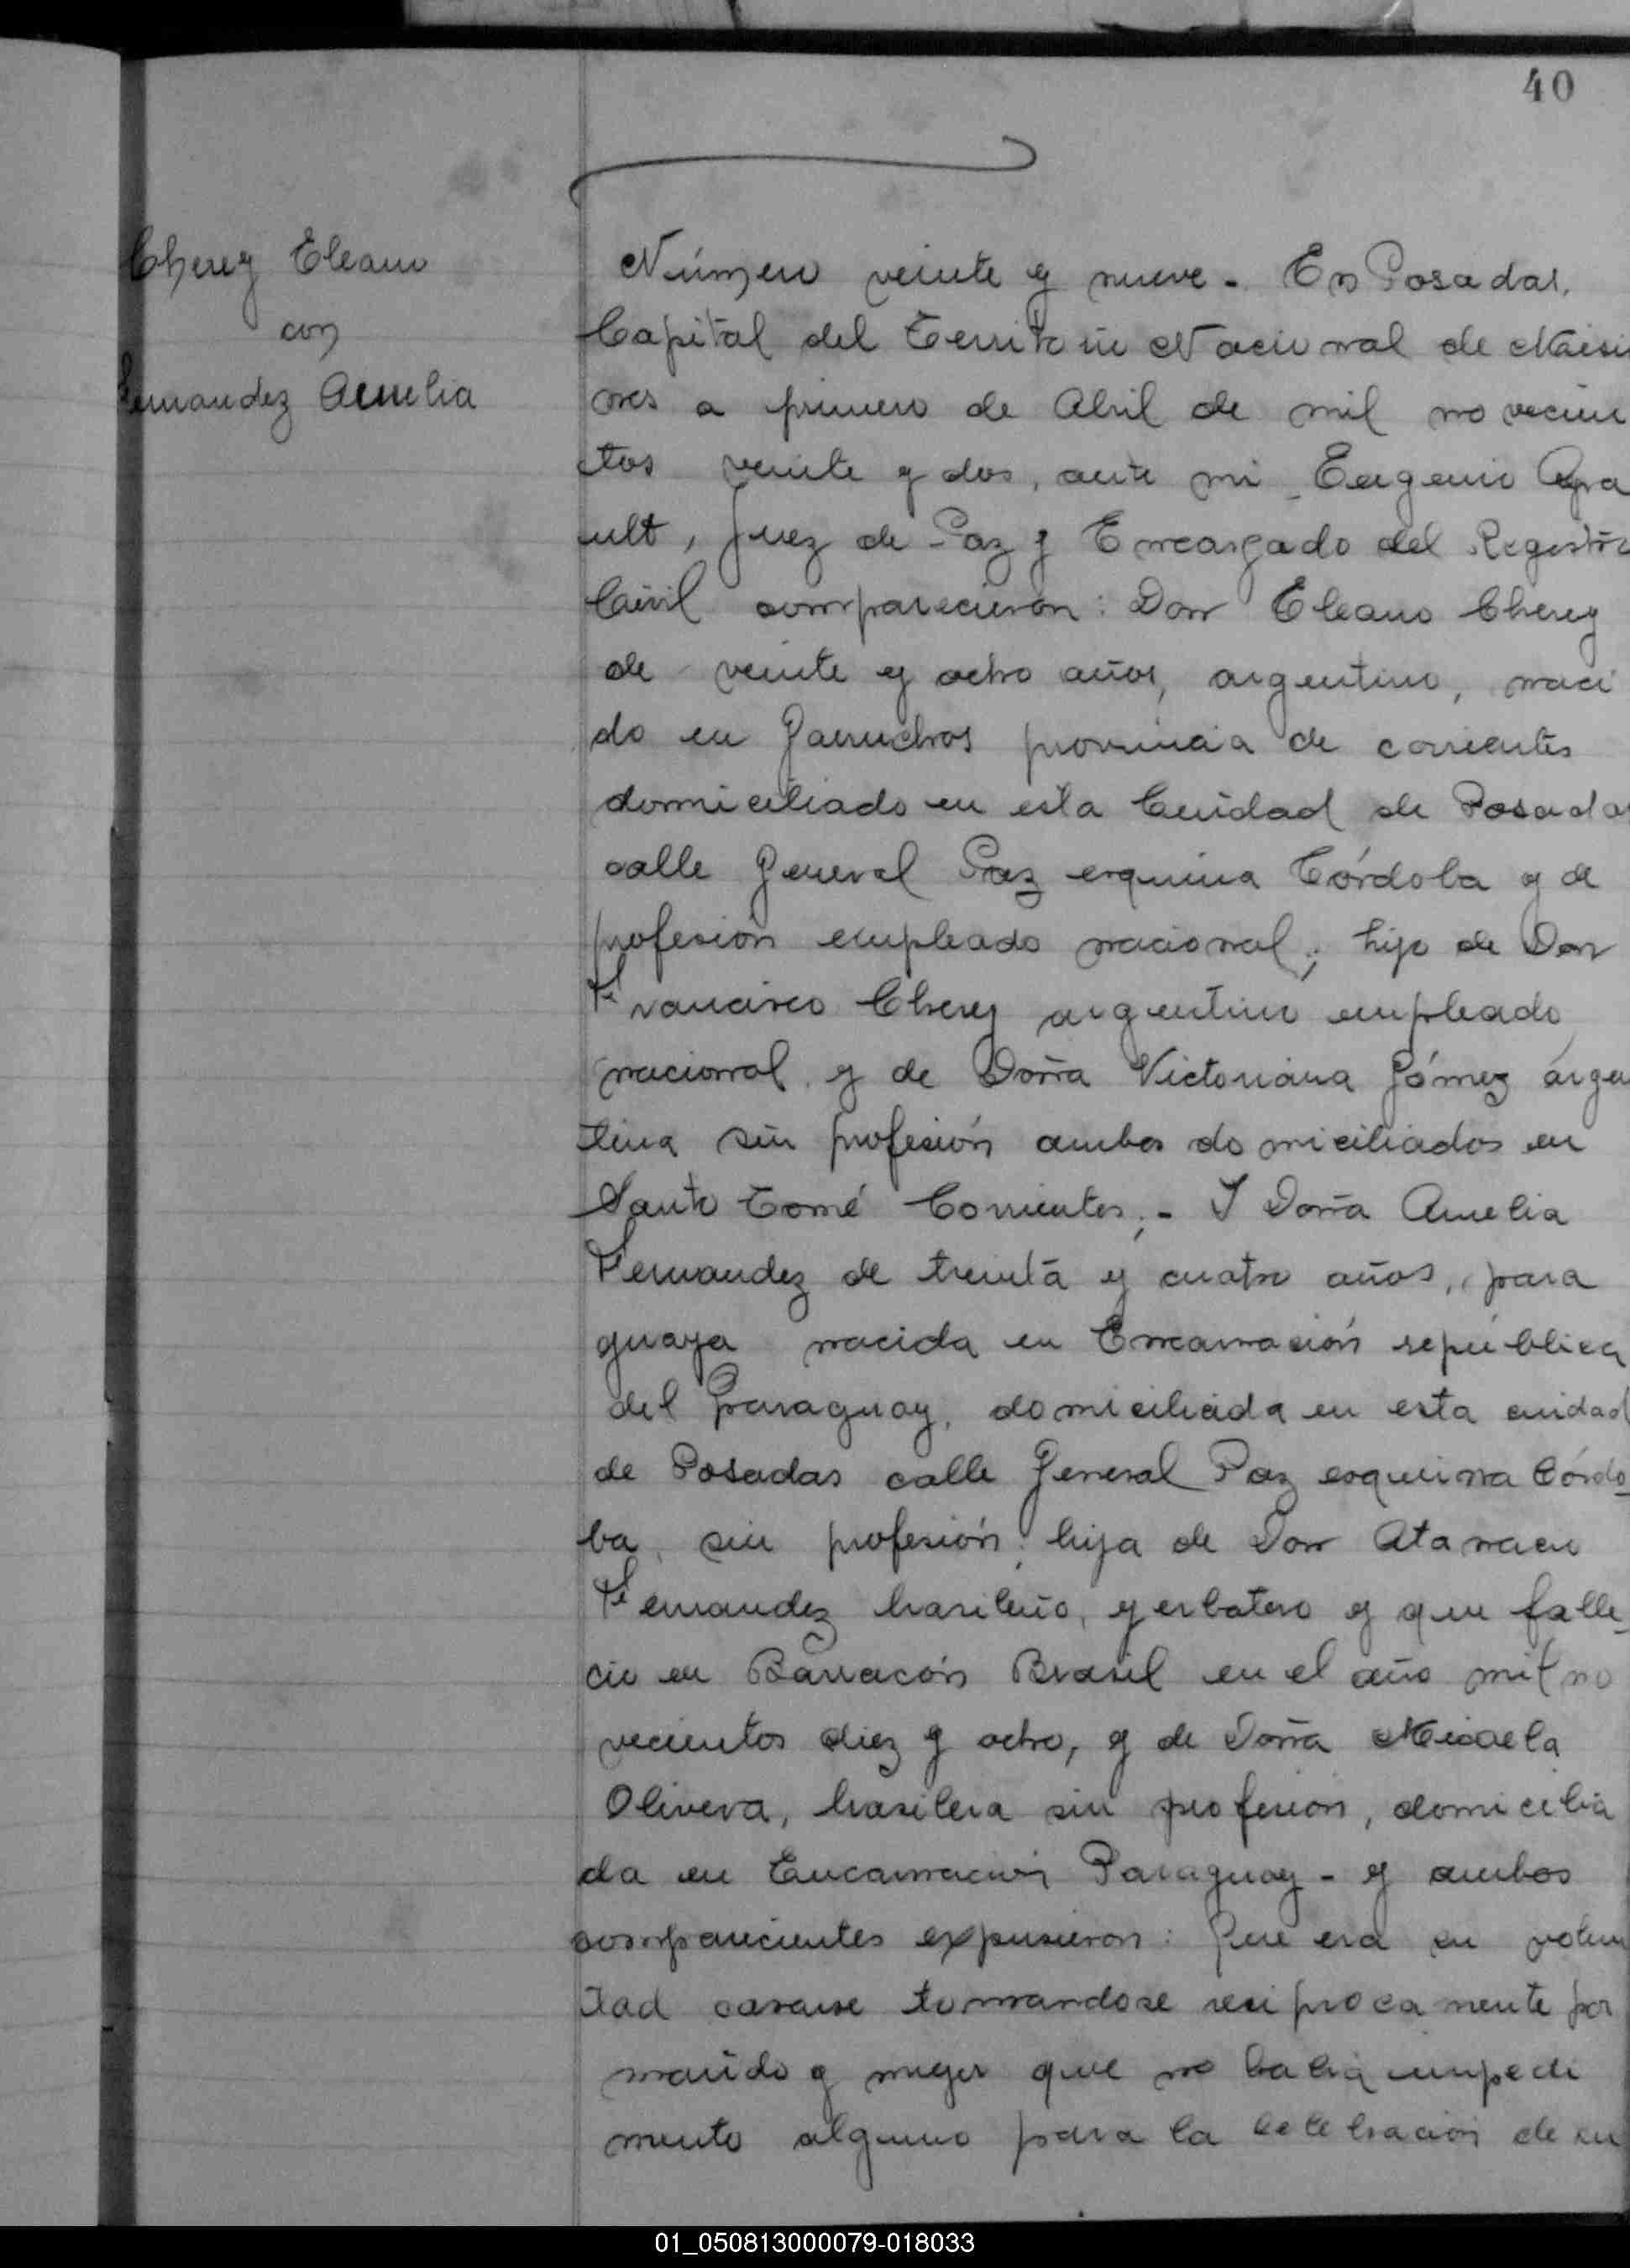 40
Cherey Eleano
con
Fernandez Amelia
Número veinte y nueve - En Posadas,
Capital del Territorio Nacional de Misio
nes a primero de Abril de mil novecien
tos veinte y dos, ante mi Eugenio Apra
ult, Juez de Paz y Encargado del Registro
Civil comparecieron: Don Eleano Cherey
de veinte y ocho años, argentino, naci
do en Garruchos provincia de corrientes
domiciliado en esta Ciudad de Posadas
calle General Paz esquina Córdoba y de
profesión empleado nacional; hijo de Don
Francisco Cherey argentino empleado
nacional y de Doña Victoriana Gómez argen
tina sin profesión ambos domiciliados en
Santo Tomé Corrientes;- Y Doña Amelia
Fernandez de treinta y cuatro años, para
guaya nacida en Encarnación república
del Paraguay, domiciliada en esta ciudad
de Posadas calle General Paz esquina Córdo-
ba, sin profesión; hija de Don Atanacio
Fernandez brasileño, yerbatero y que falle-
cio en Barracón Brasil en el año mil no
vecientos diez y ocho, y de Doña Micaela
Olivera, brasilera sin profesion, domicilia
da en Encarnación Paraguay - y ambos
comparecientes expusieron: Que era su volun
tad casarse tomandose reciprocamente por
marido y mujer que no había impedi
mento alguno para la celebración de su
01_050813000079-018033